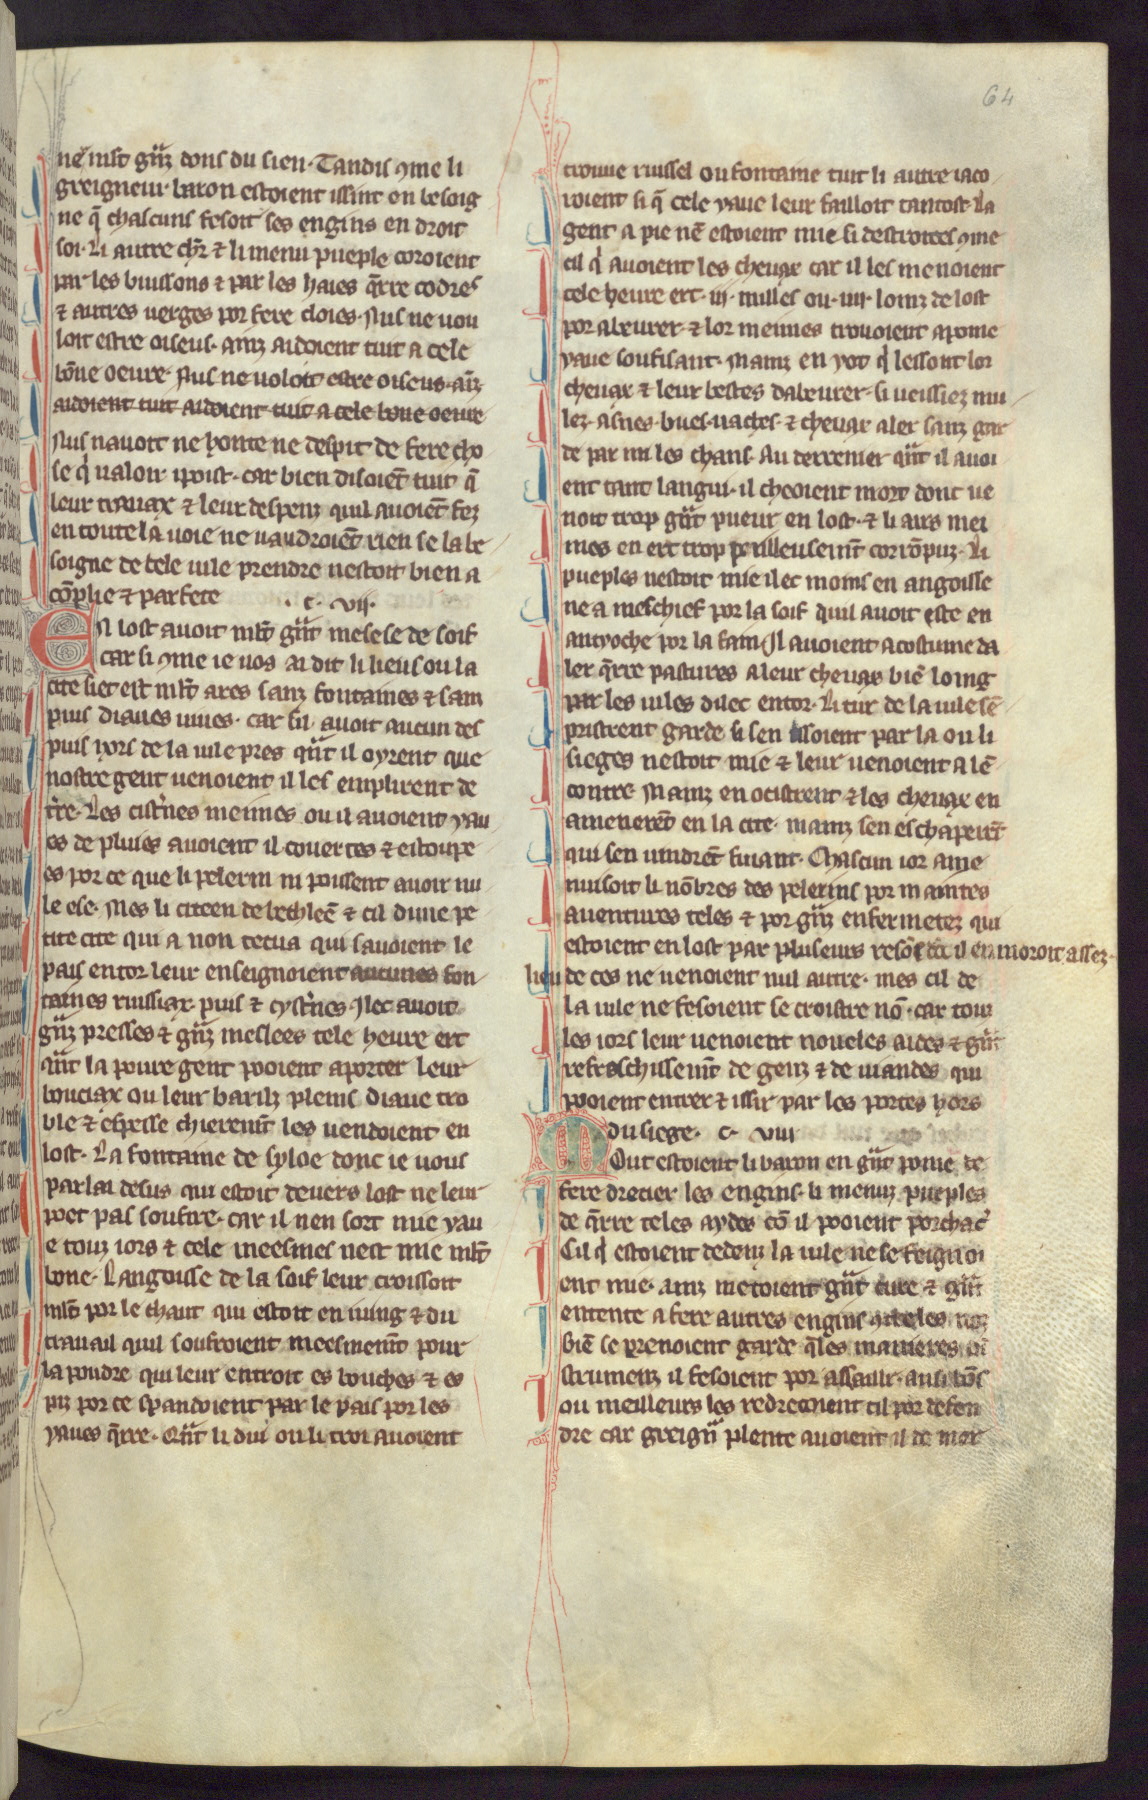 64
ne mist gͣnz dons du sien. Tandis ꝯme li
greigneur baron estoient issint en besoig
ne q̄ chascuns fesoit ses engins en droit
soi. Li autre chr̄ ⁊ li menu pueple coroient
par les buissons ⁊ par les haies q̄rre codres
⁊ autres uerges por fere cloies. Nus ne vou
loit estre oiseus. ainz aidoient tuit a cele
bōne oeure. Nus ne voloit estre oiseus. aīz
aidoient tuit aidoient tuit a cele bone oeuure
Nus nauoit ne honte ne despit de fere cho
se q̇ ualoir ipoist. car bien disoiēt tuit q̄
leur trauax ⁊ leur despenz quil auoiēt fez
en toute la uoie ne uaudroiēt rien se la be
soigne de cele uile prendre nestoit bien a
cōplie ⁊ parfete .c. vii.
En lost auoit ml̄t gͣnt mesese de soif
car si ꝯme ie uos ai dit li lieus ou la
cite siet est ml̄t ares sanz fontaines ⁊ sanz
puis diaues uiues. car sil auoit aucun des
puis hors de la uile pres qͣnt il oyrent que
nostre gent uenoient il les emplirent de
t̄re. Les cist̄nes meimes ou il auoient yau
es de pluies auoient il couertes ⁊ estoupe
es por ce que li pelerin ni poissent auoir nu
le ese. Mes li citeen de bethleē ⁊ cil dune pe
tite cite qui a non tecua qui sauoient le
pais entor leur enseignoient aucunes fon
taines ruissiax. puis ⁊ cyst̄nes. Ilec auoit
gͣnz presses ⁊ gͣnz meslees tele heure ert
qͣnt la poure gent pooient aporter leur
bouciax ou leur barilz pleins diaue tro
ble ⁊ espesse chieremt̄ les uendoient en
lost. La fontaine de syloe donc ie uous
parlai desus qui estoit deuers lost ne leur
poet pas soufire. car il nen sort mie yau
e touz iors ⁊ cele meesmes nest mie ml̄t
bone. Langoisse de la soif leur croissoit
ml̄t por le chaut qui estoit en iung ⁊ du
trauail quil soufroient meesmemt̄ pour
la poudre qui leur entroit es bouches ⁊ es
piz por ce spandoient par le pais por les
yaues q̄rre. Qͣnt li dui ou li troi auoient
trouue ruissel ou fontaine tuit li autre iaco
roient si q̄ cele yaue leur failloit tantost. La
gent a pie nē estoient mie si destroites ꝯme
cil q̇ auoient les cheuax car il les menoient
tele heure ert .iii. milles ou .iiii. loinz de lost
por abeurer. ⁊ lor meimes trouoient a poine
yaue soufisant. Mainz en yot q̇ lessoit lor
cheuax ⁊ leur bestes dabeurer. si ueissiez mu
lez. asnes. bues. uaches. ⁊ cheuax aler sanz gar
de par mi les chans. Au derrenier qͣnt il auoi
ent tant langui. il cheoient mort dont ue
noit trop gͣnt pueur en lost. ⁊ li airs mei
mes en ert trop perilleusemt̄ corrōpuz. Li
pueples nestoit mie ilec moins en angoisse
ne a meschief por la soif quil auoit este en
antyoche por la fain. Il auoient acostume da
ler q̄rre pastures a leur cheuax biē loing
par les uiles dilec entor. Li tur de la uile sē
pristrent garde si sen issoient par la ou li
sieges nestoit mie ⁊ leur uenoient a lē
contre. Mainz en ocistrent ⁊ les cheuax en
amenerēt en la cite. mainz sen eschaperēt
qui sen uindrēt fuiant. Chascun ior ame
nuisoit li nōbres des pelerins por maintes
auentures teles ⁊ por gͣnz enfermetez qui
estoient en lost par pluseurs resōs dōt il en moroit assez
lieu de ces ne uenoient nul autre. mes cil de
la uile ne fesoient se croistre nō. car touz
les iors leur uenoient noueles aides ⁊ gͣnt
refreschissemt̄ de genz ⁊ de uiandes qui
pooient entrer ⁊ issir par les portes hors
du siege. c. viii
Mout estoient li baron en gͣnt poine de
fere drecier les engins. li menuz pueples
de q̄rre teles aydes cō il pooient porchac̄
Cil q̇ estoient dedenz la uile ne se feignoi
ent mie. ainz metoient gͣnt cure ⁊ gͣnt
entente a fere autres engins
biē se prenoient garde q̄les manieres
strumenz il fesoient por assaillir. ausi bōs
ou meilleurs les redrecoient cil por defen
dre car greigneur plente auoient il de mer